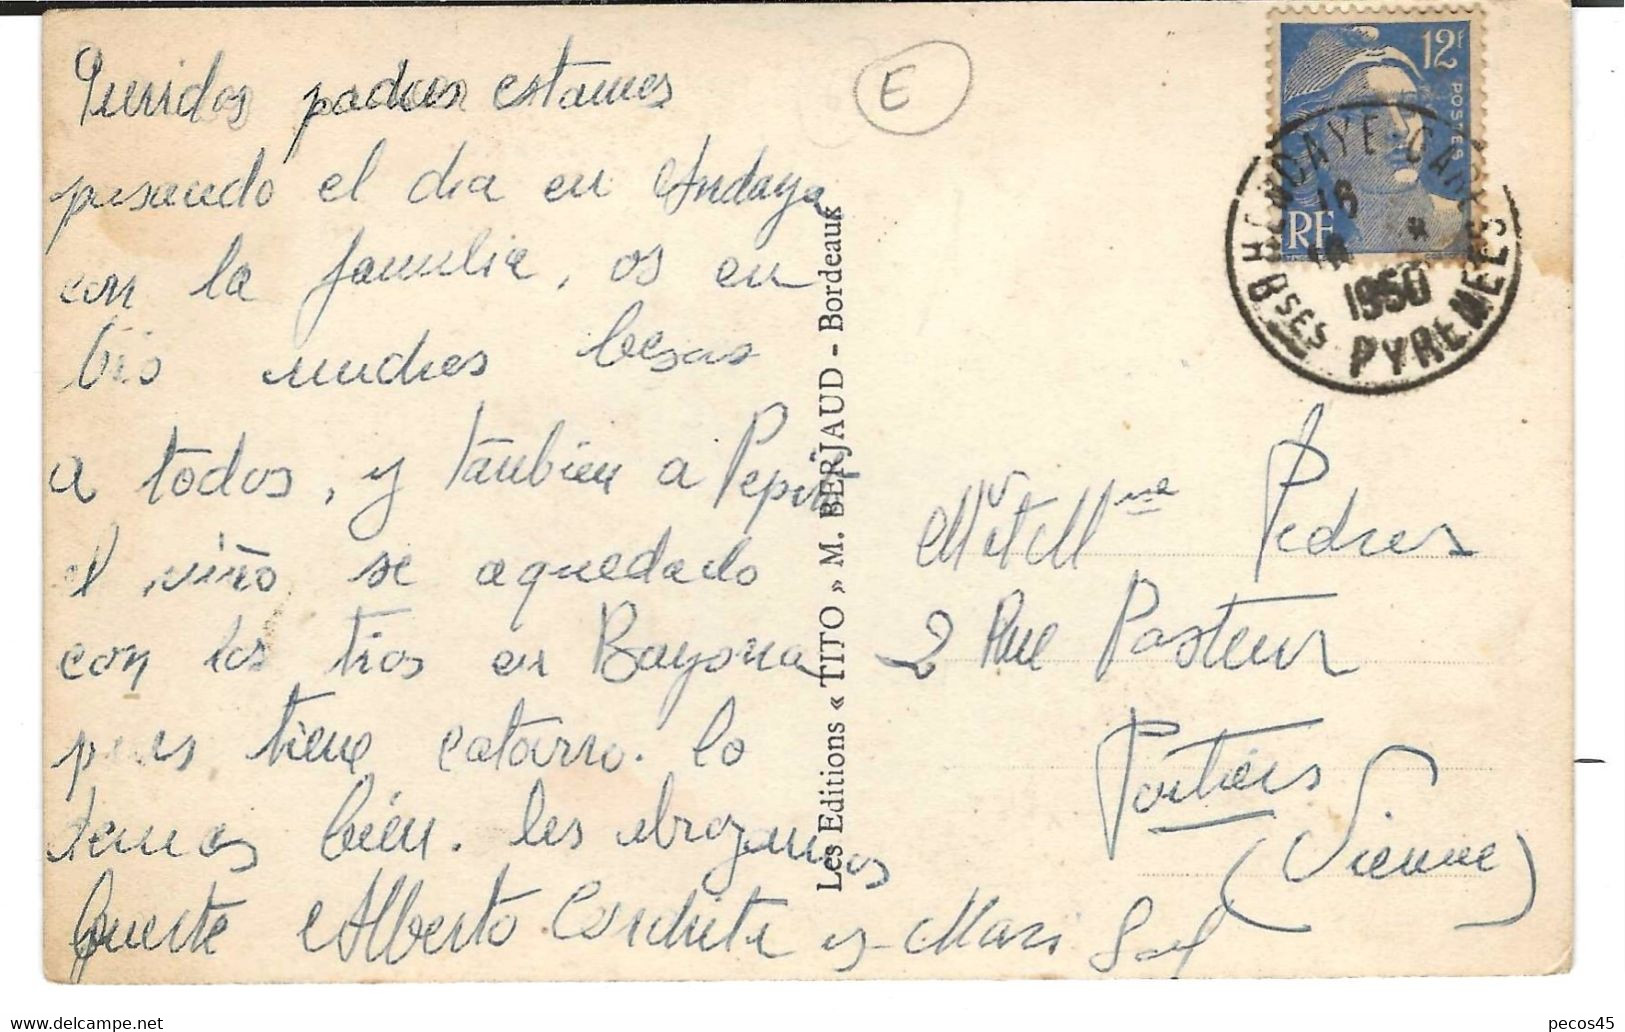 Queridos padres estames
pasando el dia en Andaya
con la familia, os en
besas
a todos, y también a Pepin
el niño se aquedado
con los tios en Bayona
pues tiene catarro. lo
temos bién. les abrazamos
fuerte Alberto Conchita y Mari Sol
E
12F
POSTES
RF
HENDAYE-GARE
16
1950
BSES PYRENEES
Les Editions « TITO » M. BERJAUD - Bordeaux
Mr et Mme Pedres
2 Rue Pasteur
Poitiers
(Vienne)
pecos45